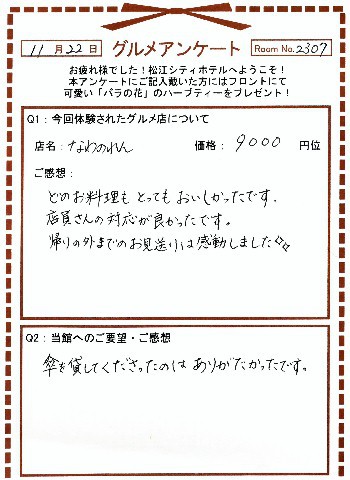 11月22日 グルメアンケート Room No.2307
お疲れ様でした！松江シティホテルへようこそ！
本アンケートにご記入戴いた方にはフロントにて
可愛い「バラの花」のハーブティーをプレゼント！
Q1：今回体験されたグルメ店について
店名：なわのれん 価格：9000円位
ご感想：
どのお料理もとってもおいしかったです.
店員さんの対応が良かったです。
帰りの外までのお見送りは感動しました
Q2：当館へのご要望・ご感想
傘を貸してくださったのはありがたかったです。